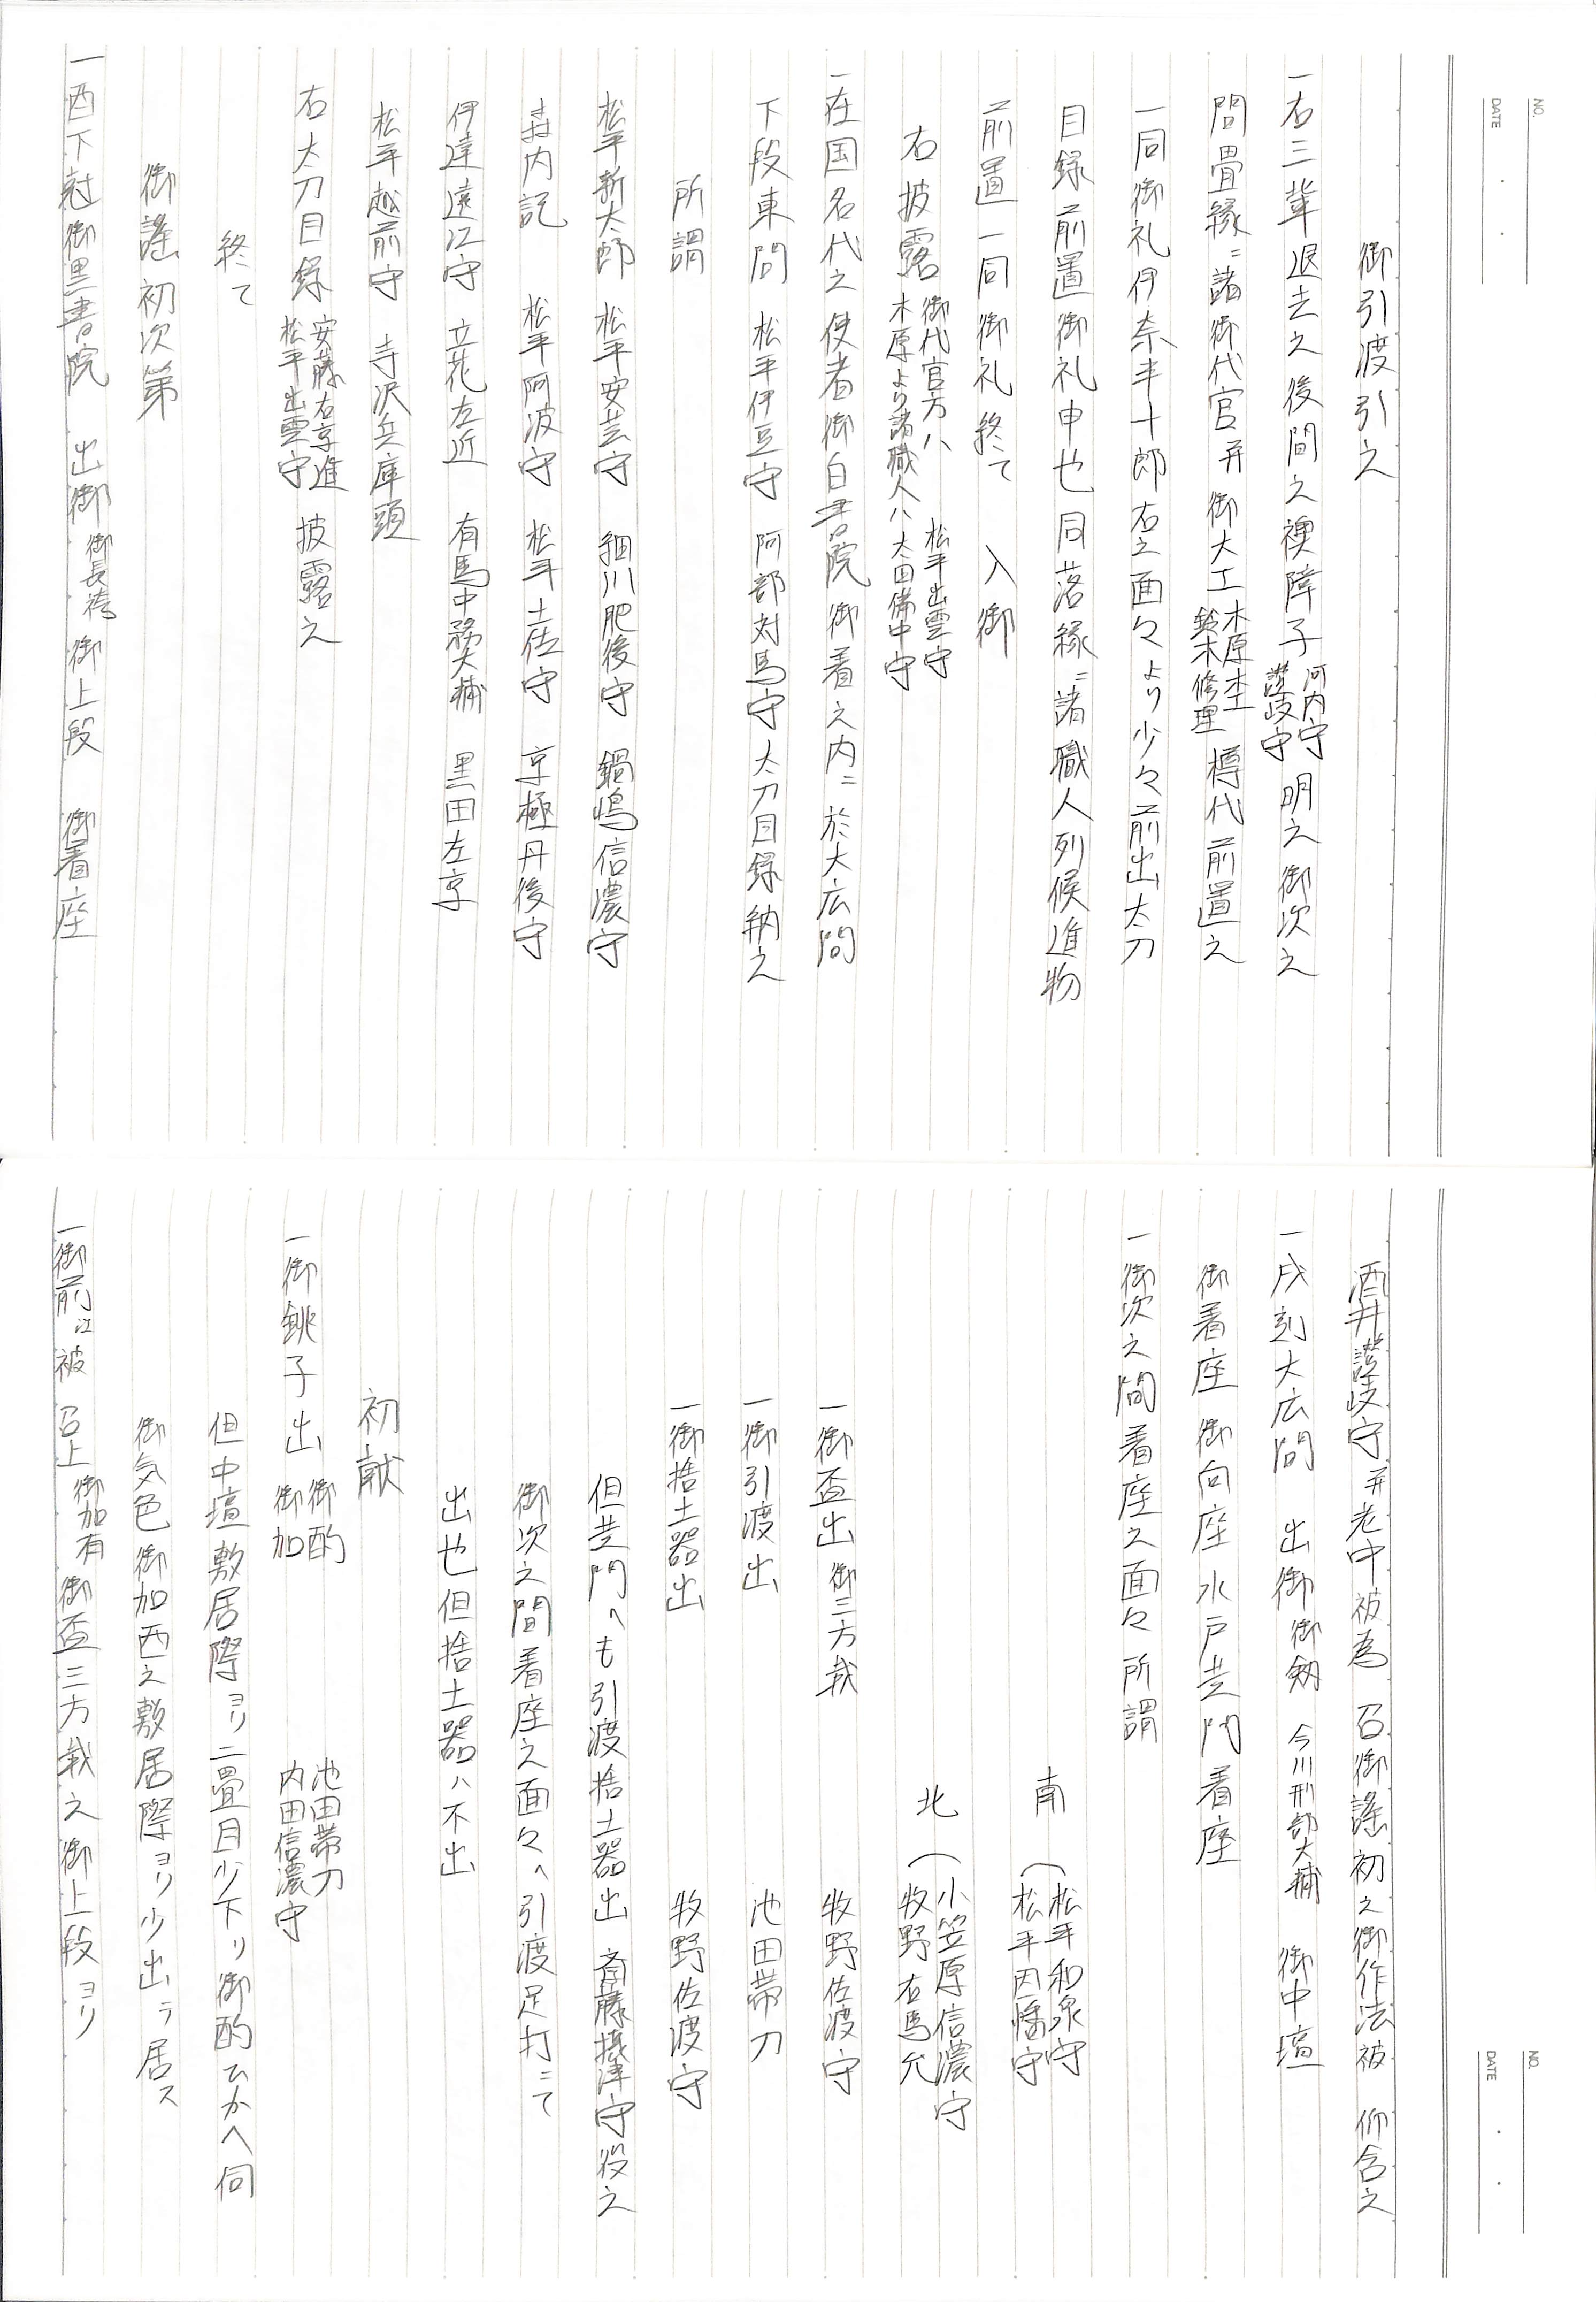 NO.
DATE
御引渡引之
一右三輩退去之後間之襖障子 河内守 讃岐守 明之御次之
間畳縁ニ諸御代官并御大工 木原木工 鈴木修理 樽代前置之
一同御礼伊奈半十郎右之面々より少々前出太刀
目録前置御礼申也同落縁ニ諸職人列候進物
前置一同御礼終て 入御
右披露 御代官方ハ 松平出雲守 木原より諸職人ハ太田備中守
一在国名代之使者御白書院御着之内ニ於大広間
下段東間 松平伊豆守 阿部対馬守太刀目録納之
所謂
松平新太郎 松平安芸守 細川肥後守 鍋嶋信濃守
森内記 松平阿波守 松平土佐守 京極丹後守
伊達遠江守 立花左近 有馬中務大輔 黒田左京
松平越前守 寺沢兵庫頭
右太刀目録 安藤右京進 松平出雲守 披露之
終て
御謡初次第
一酉下尅御黒書院 出御 御長袴 御上段 御着座
NO.
DATE
酒井讃岐守并老中被為 召御謡初之御作法被 仰含之
一戌刻大広間 出御 御剱 今川刑部大輔 御中壇
御着座 御向座水戸黄門着座
一御次之間着座之面々所謂
南 松平和泉守 松平因幡守
北 小笠原信濃守 牧野右馬允
一御盃出 御三方載 牧野佐渡守
一御引渡出 池田帯刀
一御捨土器出 牧野佐渡守
但黄門へも引渡捨土器出 斎藤摂津守役之
御次之間着座之面々へ引渡足打ニて
出也但捨土器ハ不出
初献
一御銚子出 御酌 御加 池田帯刀 内田信濃守
但中壇敷居際ヨリ二畳目少下リ御酌ひかへ伺
御気色御加西之敷居際ヨリ少出テ居ス
一御前江被 召上 御加有 御盃三方載之御上段ヨリ